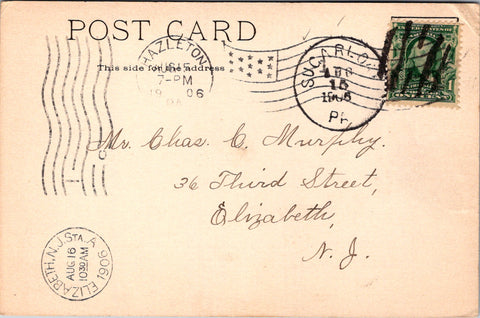 POST CARD
This side for the address
HAZLETON
7-PM
1906
PA
SUGARLOAF
AUG
15
1906
PA.
1
Mr. Chas. C. Murphy.
36 Third Street,
Elizabeth,
N. J.
ELIZABETH, N.J. STA. A
AUG 16
1030 AM
1906